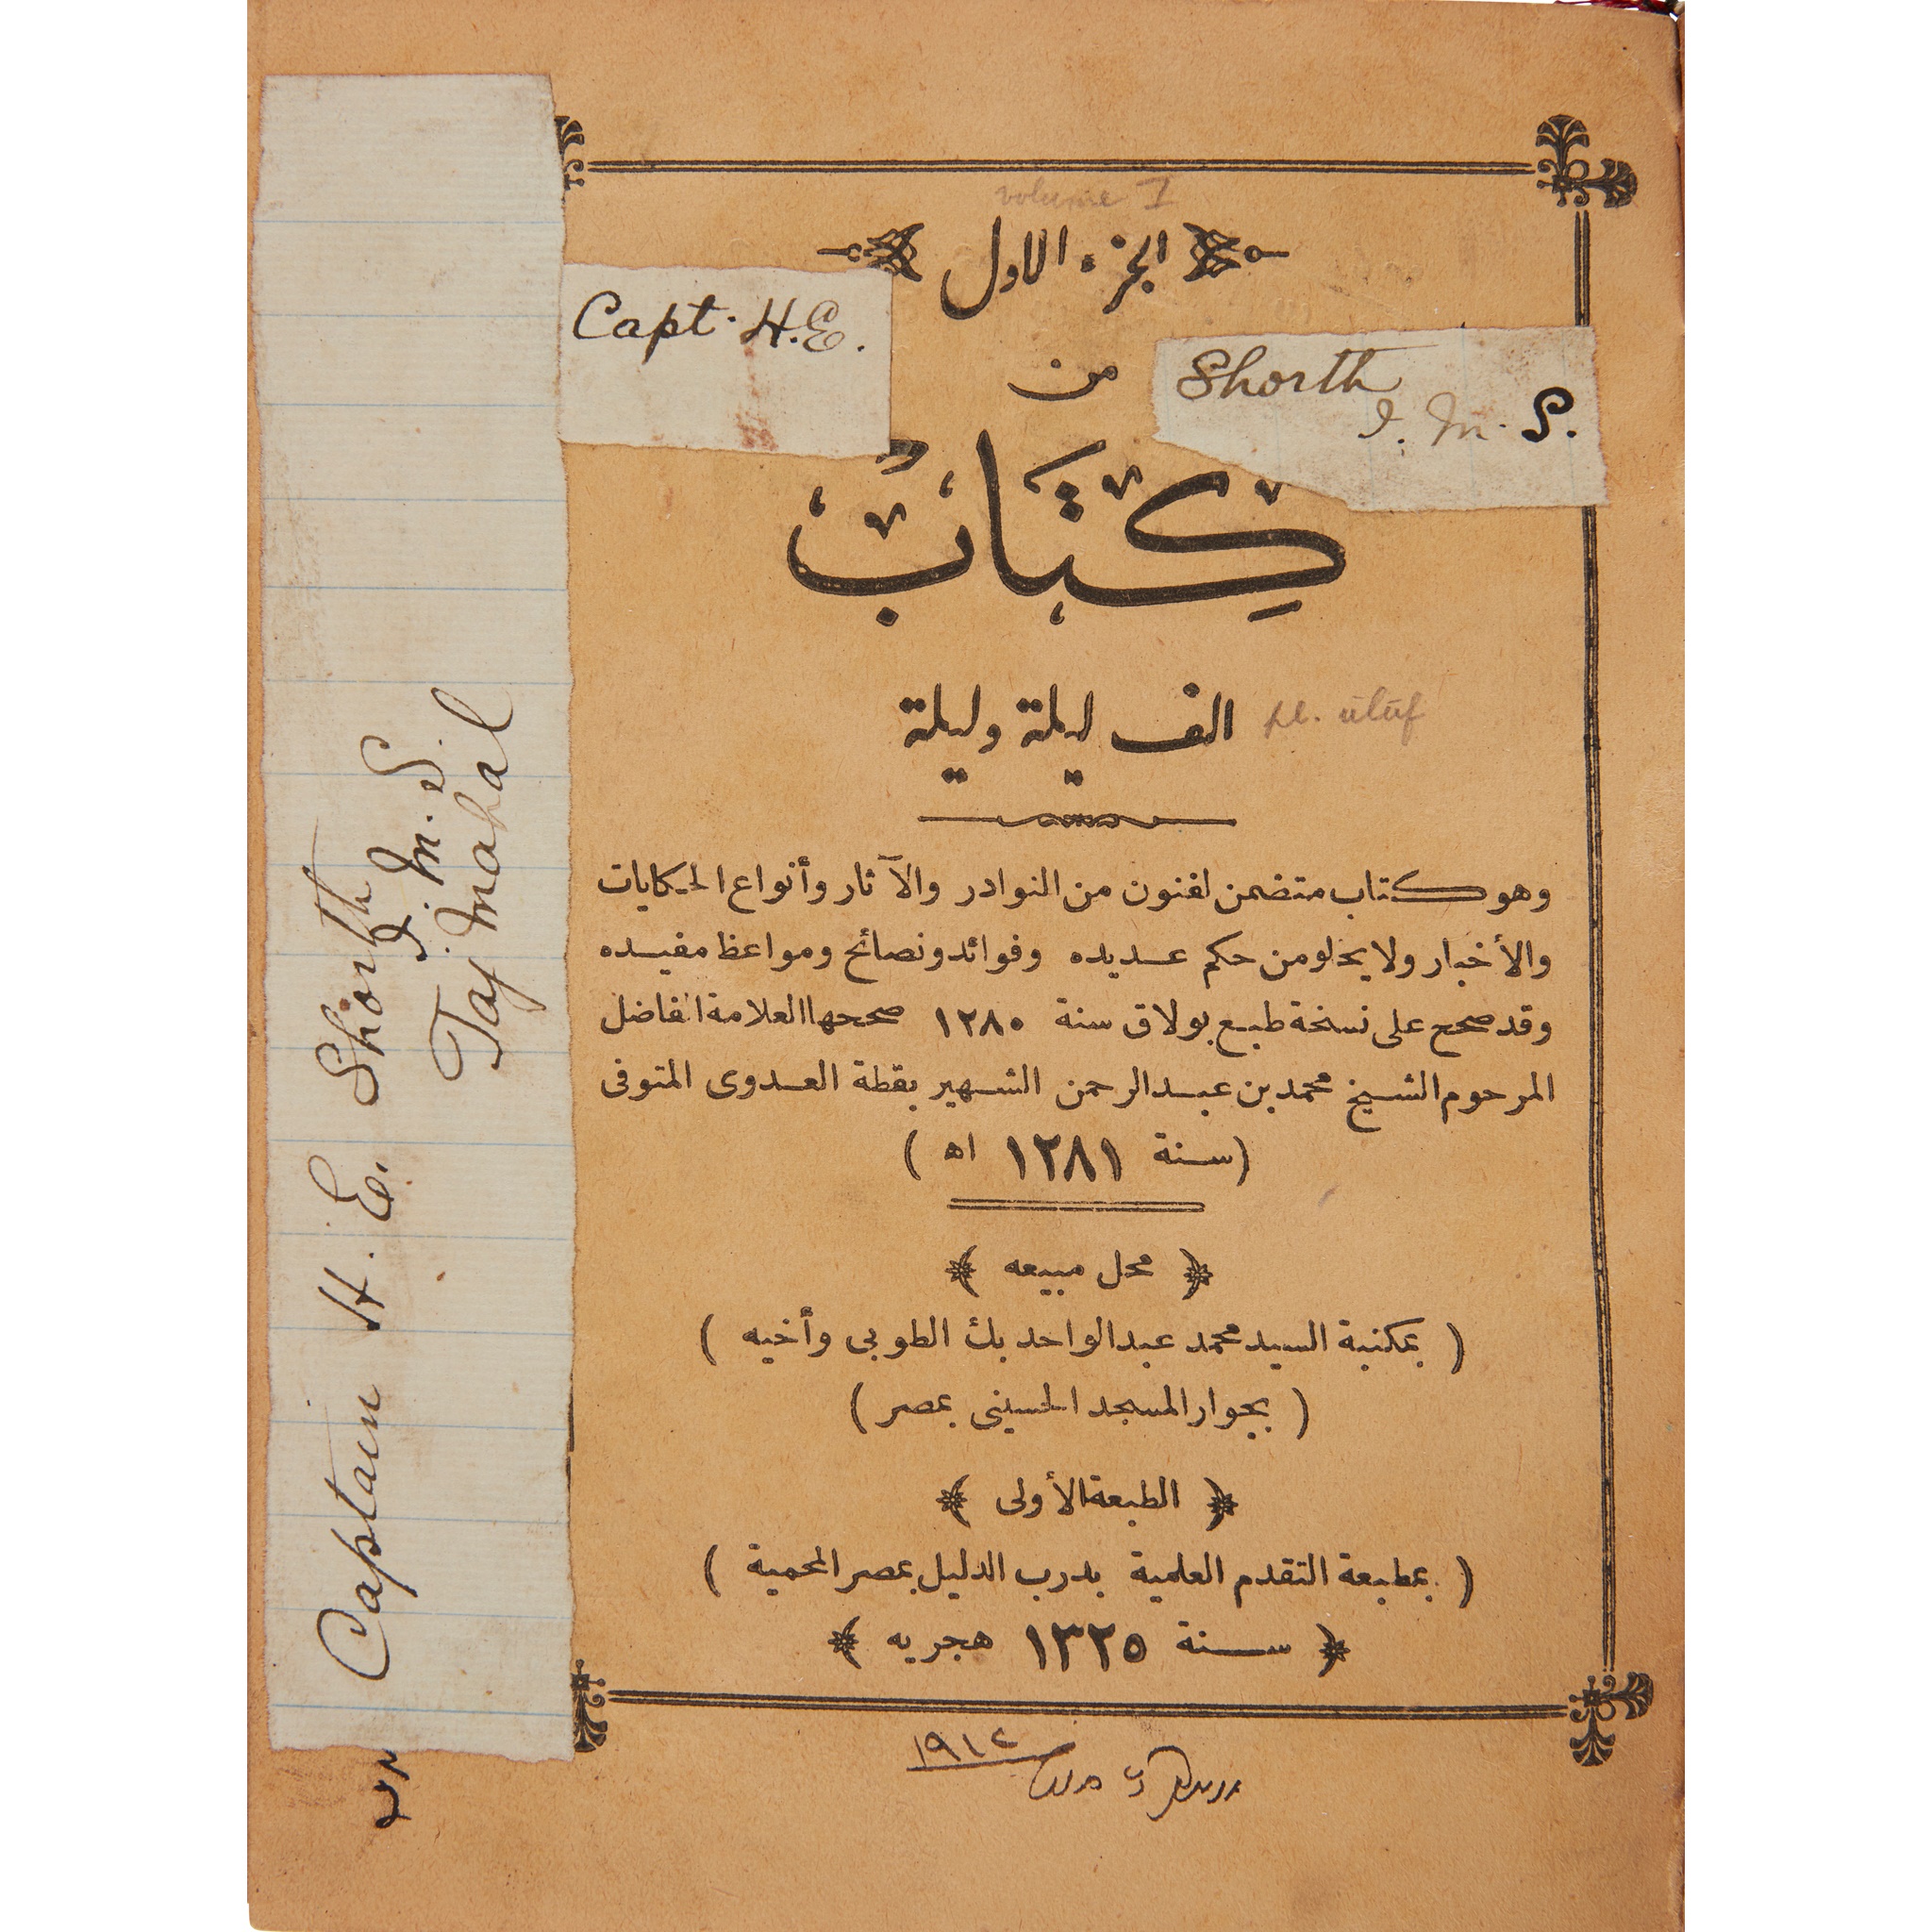 volume I
الجزء الاول
Capt. H.E.
من
Shorth
I. M. S.
كِتَابُ
الف ليلة وليلة
pl. ulūf
وهو كتاب متضمن لفنون من النوادر والآثار وأنواع الحكايات
والأخبار ولا يخلو من حكم عديده وفوائد ونصائح ومواعظ مفيده
وقد صحح على نسخة طبع بولاق سنة ١٢٨٠ صححها العلامة الفاضل
المرحوم الشيخ محمد بن عبد الرحمن الشهير بقطة العدوى المتوفى
(سنة ١٢٨١ اه)
﴿ محل مبيعه ﴾
( بمكتبة السيد محمد عبد الواحد بك الطوبى وأخيه )
( بجوار المسجد الحسينى بمصر )
﴿ الطبعة الأولى ﴾
( بمطبعة التقدم العلمية بدرب الدليل بمصر المحمية )
﴿ سنة ١٣٢٥ هجريه ﴾
Captain H. E. Shorth
I. M. S.
Taj Mahal
١٩١٤